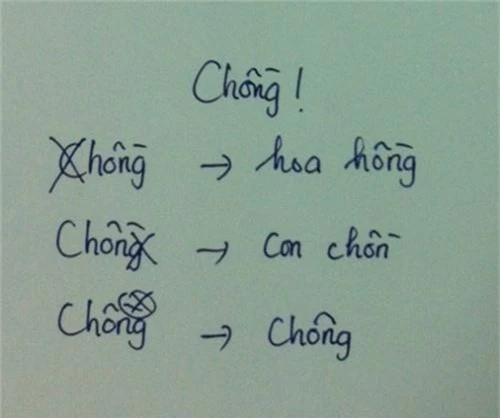 Chồng!
Chồng → hoa hồng
Chồng → con chồn
Chồng → Chông